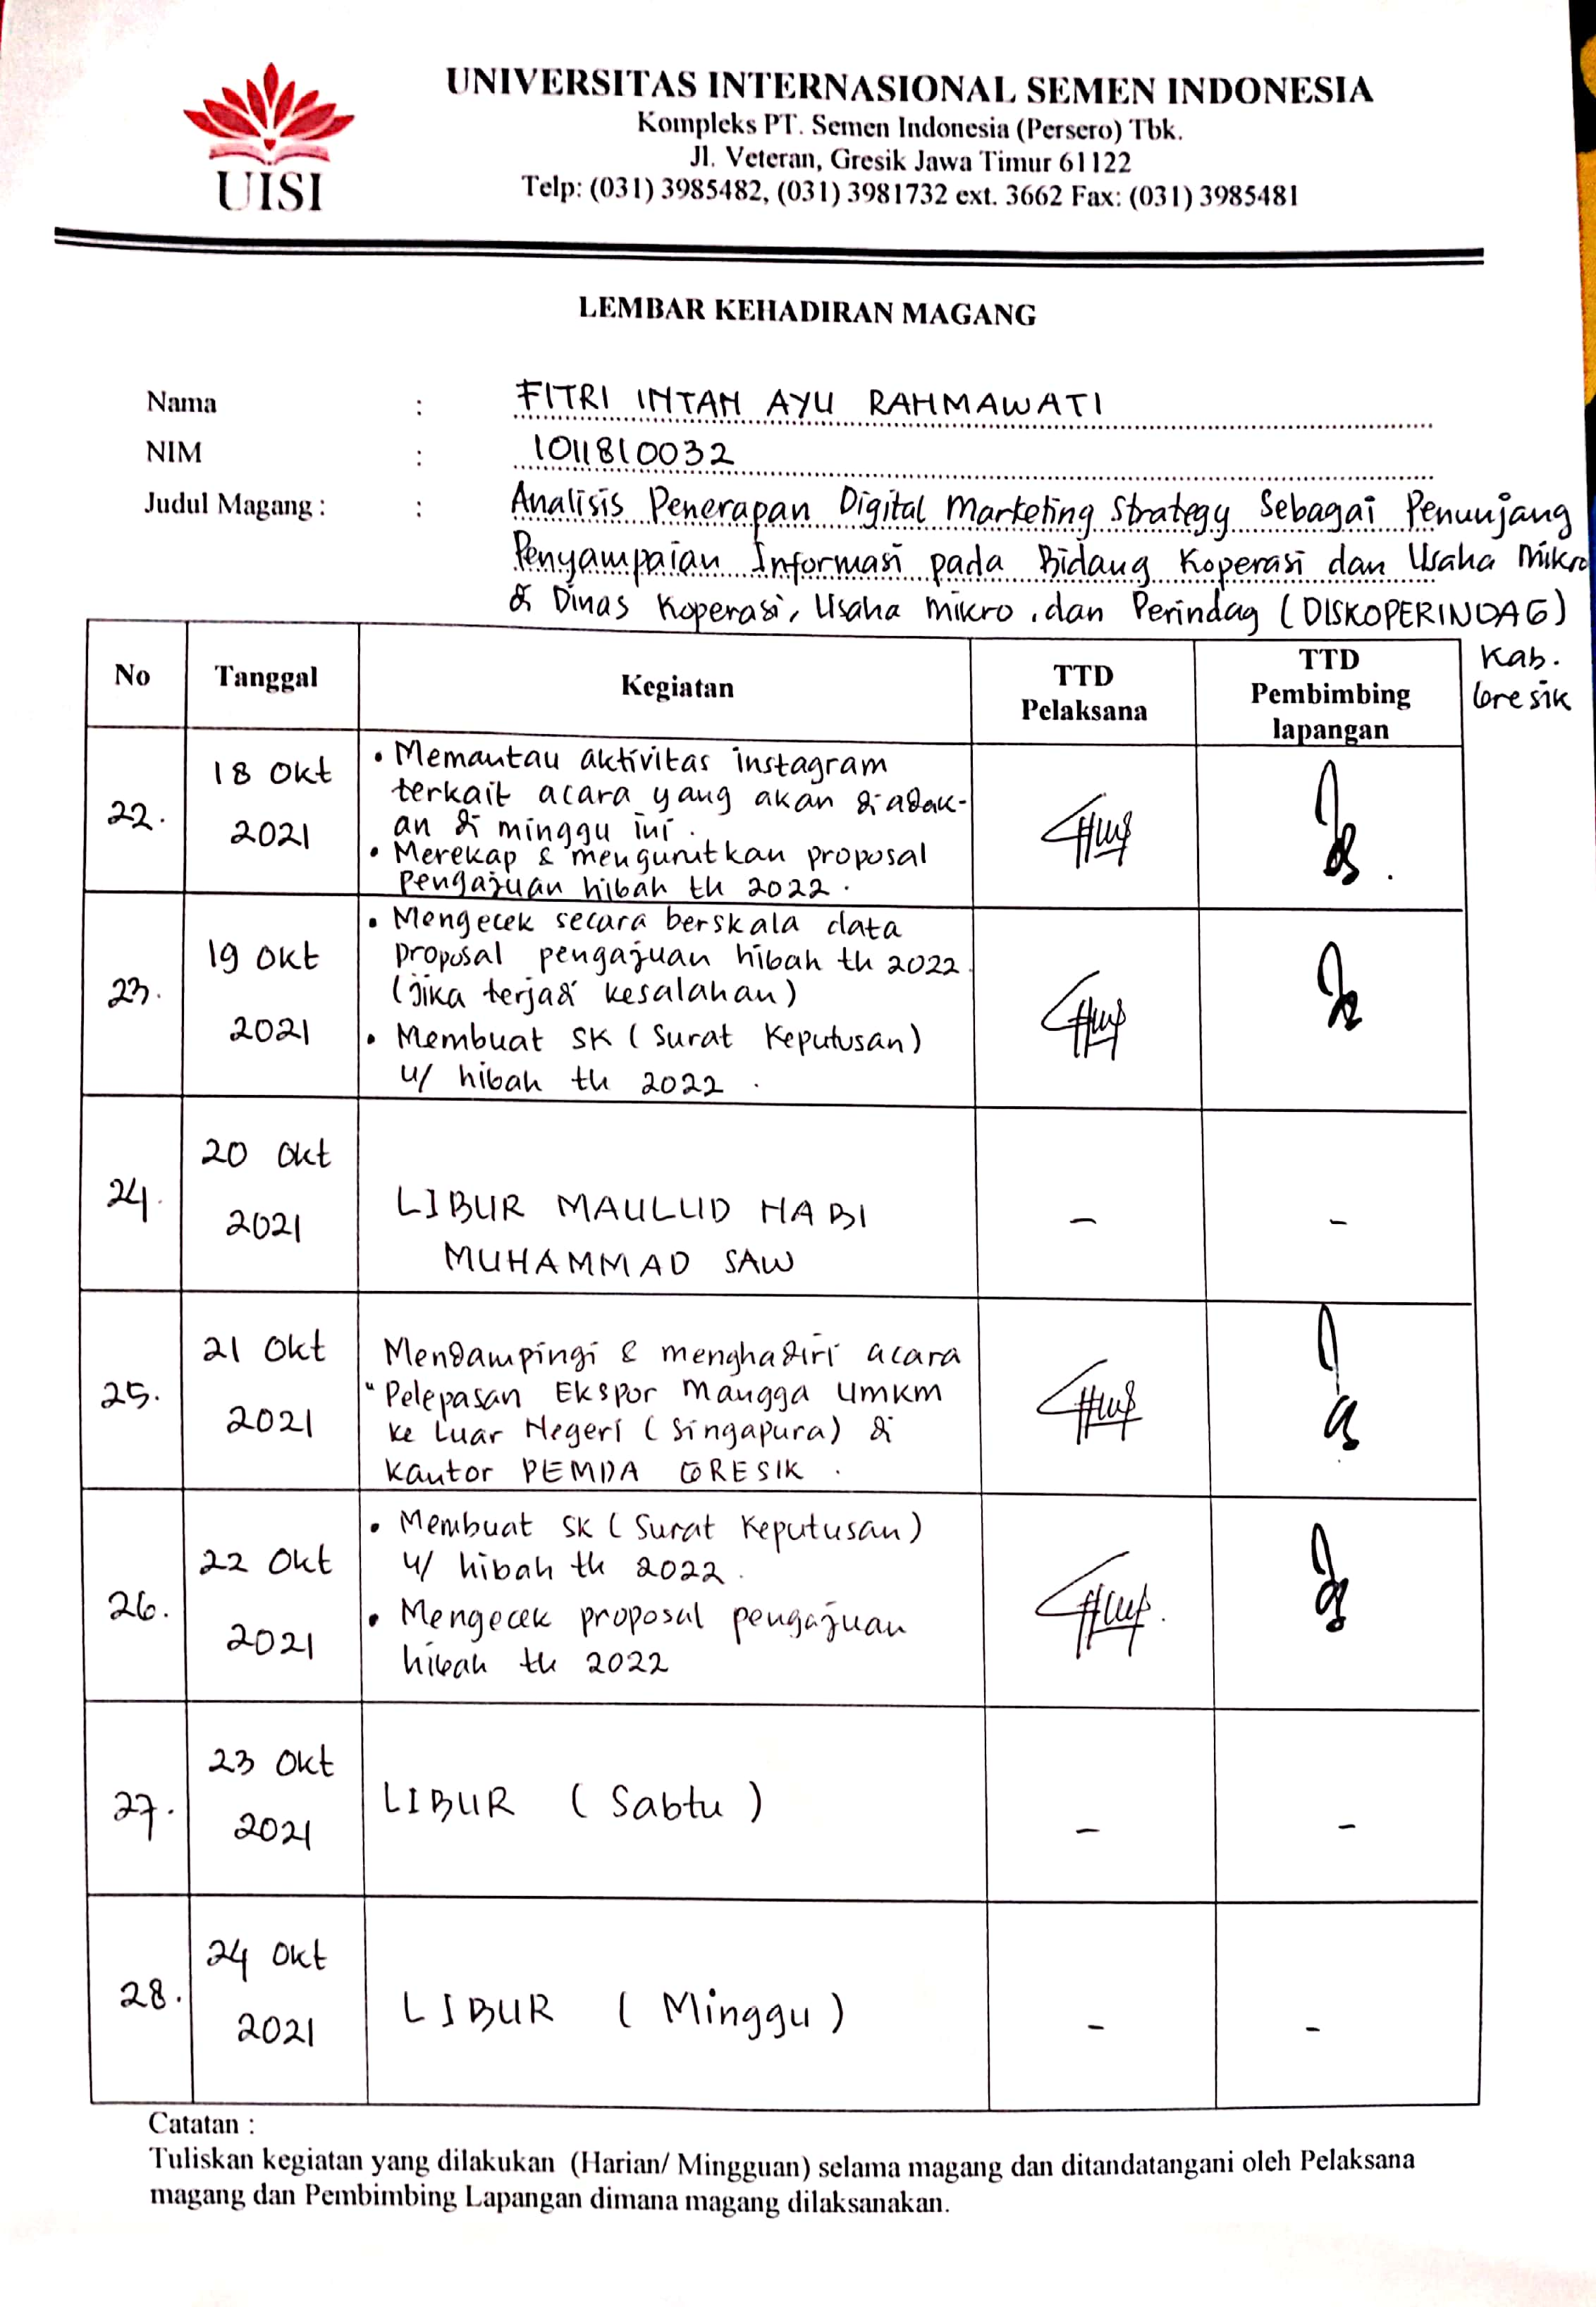 UISI
UNIVERSITAS INTERNASIONAL SEMEN INDONESIA
Kompleks PT. Semen Indonesia (Persero) Tbk.
Jl. Veteran, Gresik Jawa Timur 61122
Telp: (031) 3985482, (031) 3981732 ext. 3662 Fax: (031) 3985481
LEMBAR KEHADIRAN MAGANG
Nama : FITRI INTAN AYU RAHMAWATI
NIM : 1011810032
Judul Magang : : Analisis Penerapan Digital Marketing Strategy Sebagai Penunjang
Penyampaian Informasi pada Bidang Koperasi dan Usaha Mikro
di Dinas Koperasi, Usaha Mikro, dan Perindag (DISKOPERINDAG)
Kab.
Gresik
No Tanggal Kegiatan TTD Pelaksana TTD Pembimbing lapangan
22. 18 Okt 2021
• Memantau aktivitas instagram
terkait acara yang akan diadak-
an di minggu ini.
• Merekap & mengurutkan proposal
pengajuan hibah th 2022.
23. 19 Okt 2021
• Mengecek secara berskala data
proposal pengajuan hibah th 2022.
(jika terjadi kesalahan)
• Membuat SK (Surat Keputusan)
u/ hibah th 2022.
24. 20 Okt 2021
LIBUR MAULUD NABI
MUHAMMAD SAW
- -
25. 21 Okt 2021
Mendampingi & menghadiri acara
"Pelepasan Ekspor Mangga UMKM
ke Luar Negeri (Singapura) di
Kantor PEMDA GRESIK.
26. 22 Okt 2021
• Membuat SK (Surat Keputusan)
u/ hibah th 2022.
• Mengecek proposal pengajuan
hibah th 2022
27. 23 Okt 2021
LIBUR (Sabtu)
- -
28. 24 Okt 2021
LIBUR (Minggu)
- -
Catatan :
Tuliskan kegiatan yang dilakukan (Harian/ Mingguan) selama magang dan ditandatangani oleh Pelaksana
magang dan Pembimbing Lapangan dimana magang dilaksanakan.